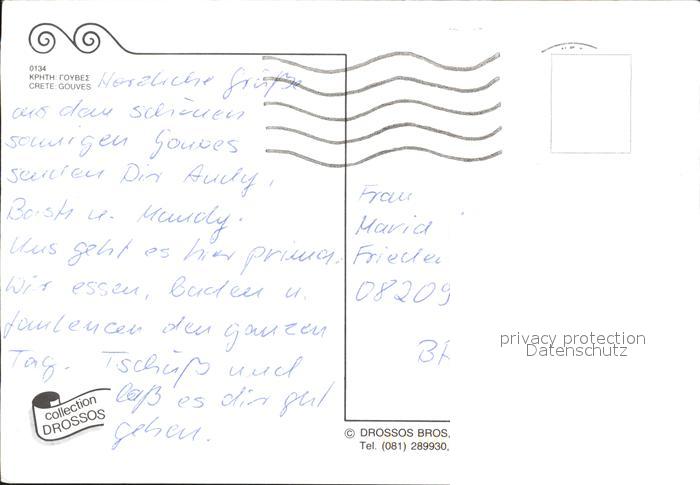 0134
ΚΡΗΤΗ: ΓΟΥΒΕΣ
CRETE: GOUVES
Herzliche Grüße
aus dem schönen
sonnigen Gouves
senden Dir Andy,
Basti u. Mandy.
Uns geht es hier prima.
Wir essen, baden u.
faulenzen den ganzen
Tag. Tschüß und
laß es dir gut
gehen.
collection
DROSSOS
Frau
Maria
Frieder
08209
BR
© DROSSOS BROS,
Tel. (081) 289930,
privacy protection
Datenschutz